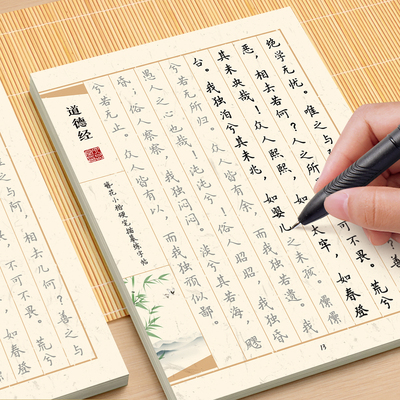 绝学无忧。唯之与
恶,相去若何?人之所
荒兮
其未央哉!众人熙熙,如
太牢,如春登
台。我独泊兮其未兆,如婴儿之未孩。儽儽
兮若无所归。众人皆有余,而我独若遗。我
愚人之心也哉!沌沌兮!俗人昭昭,我独昏
昏,俗人察察,我独闷闷。澹兮其若海,飂
兮若无止。众人皆有以,而我独顽似鄙。
道德经
簪花小楷硬笔描摹练字帖
13
之与阿,相去几何?善之与
不可不畏。荒兮
如春登